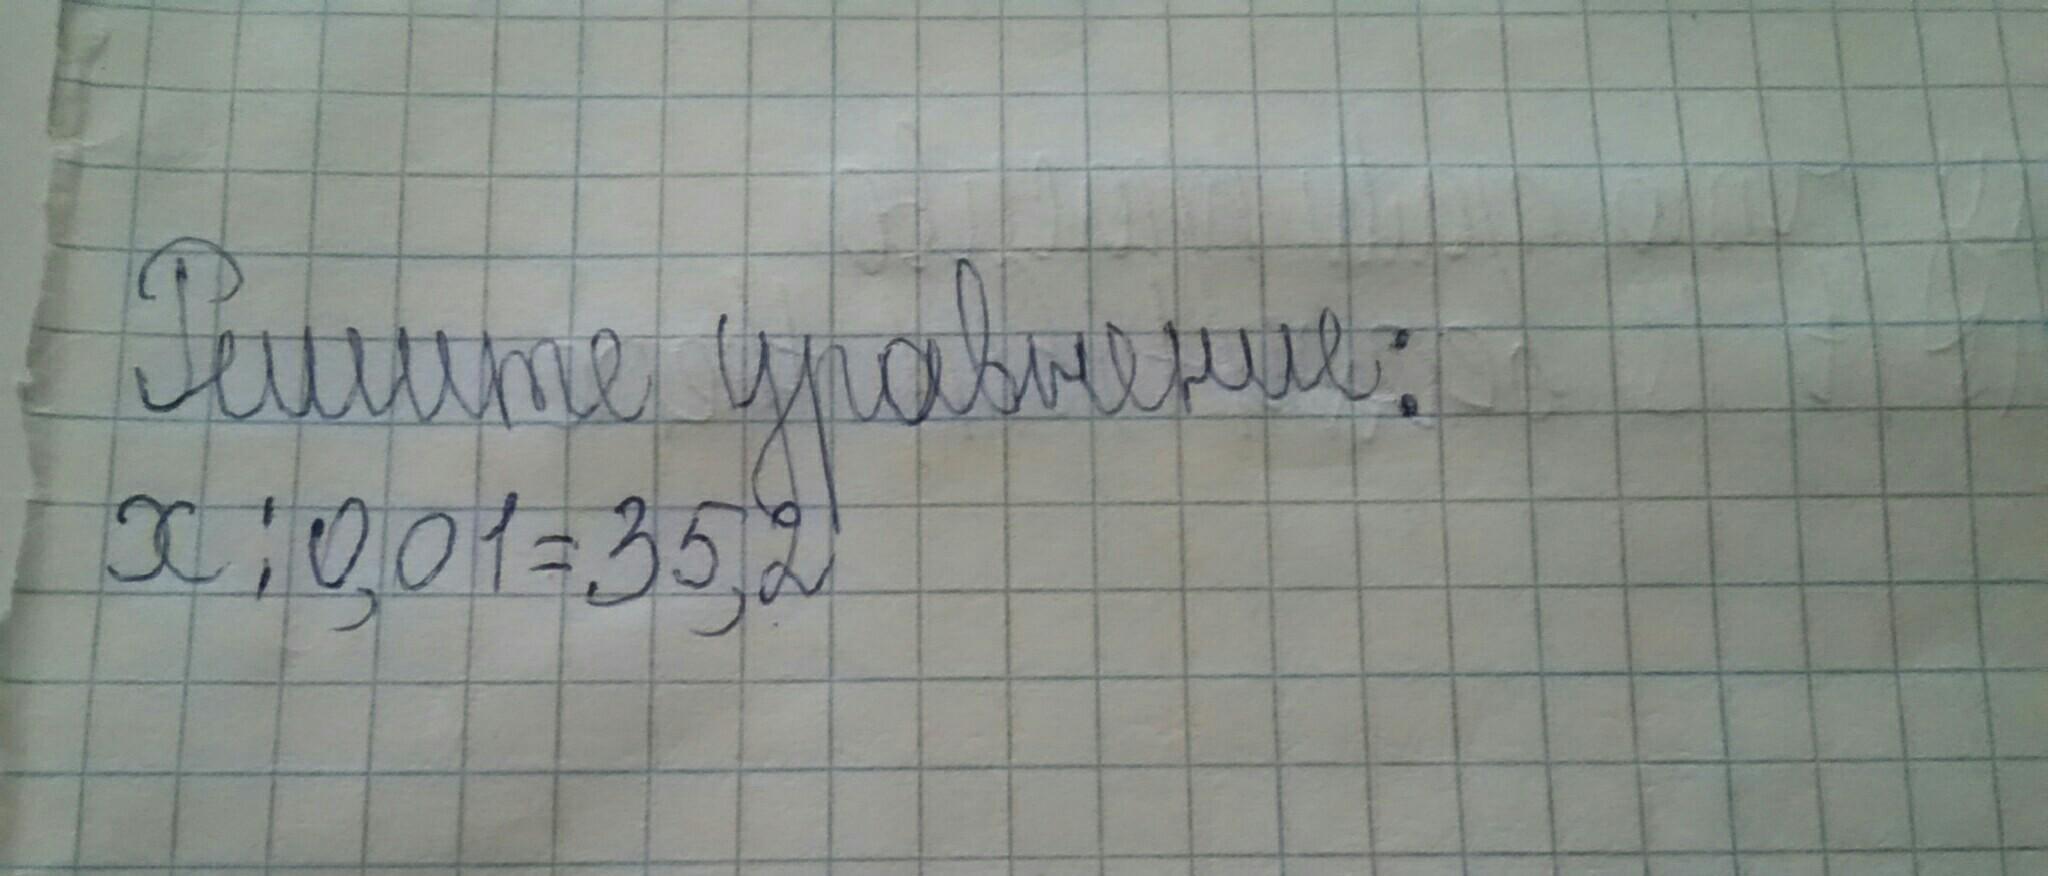 Решите уравнение:
x : 0,01 = 35,2